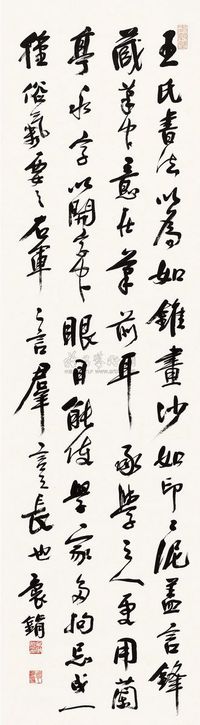 王氏書法以為如錐畫沙如印印泥蓋言鋒
藏筆中意在筆前耳承學之人更用蘭
亭永字以開字中眼目能使學家多拘忌成一
種俗氣要之右軍之言羣言之長也 袁鏞